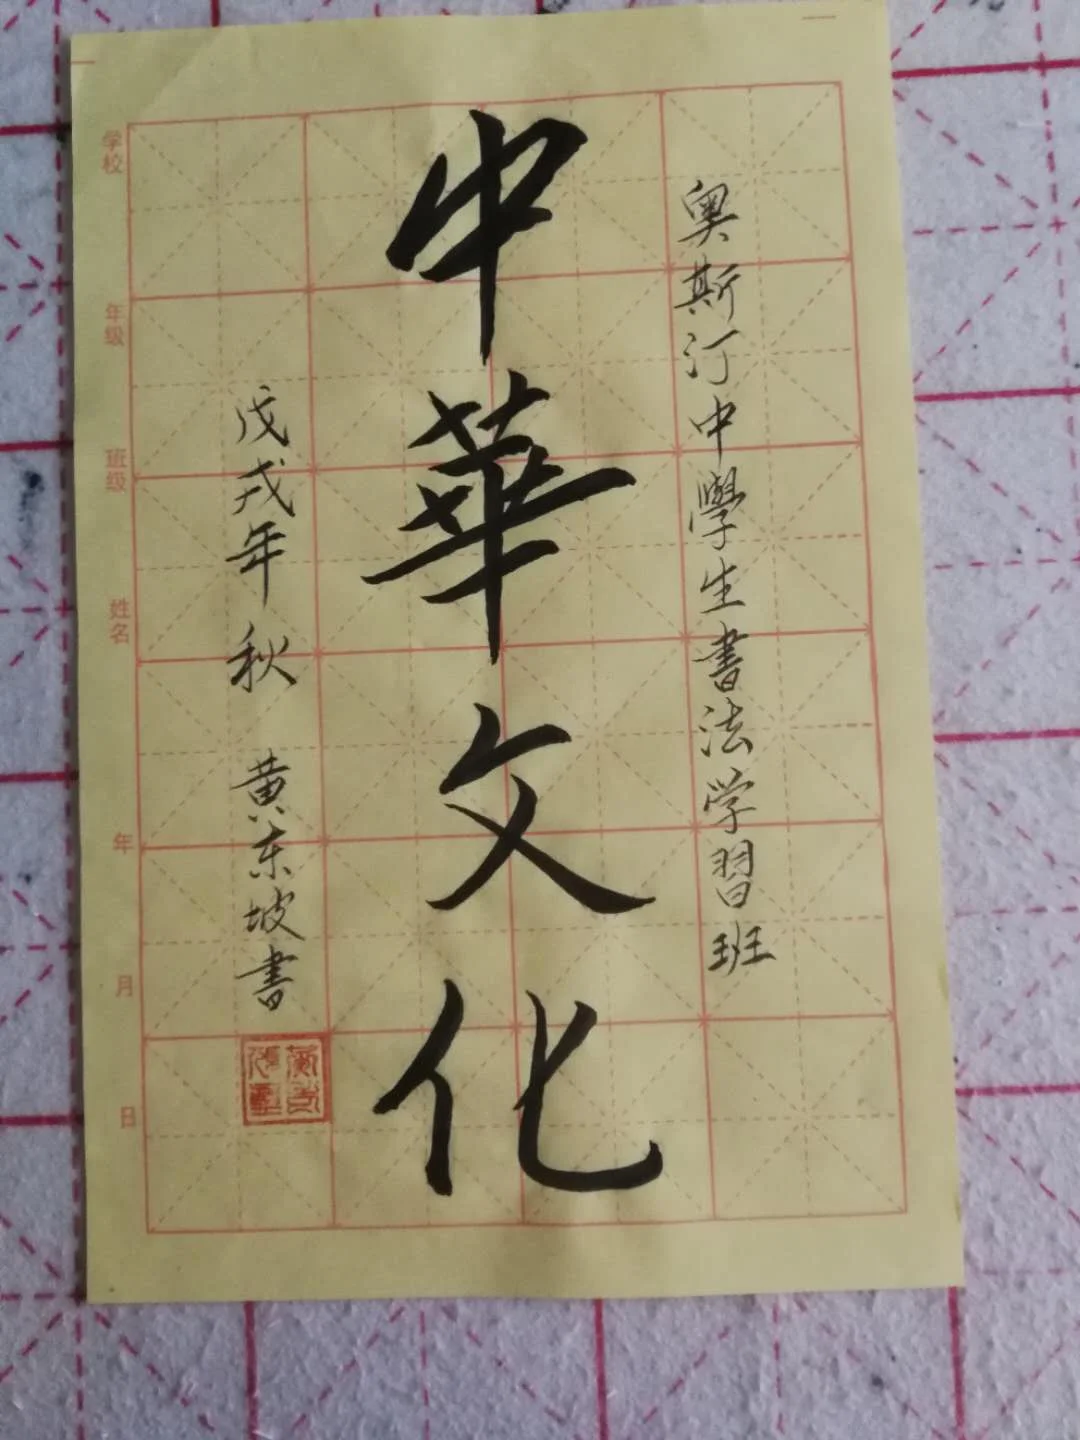 奥斯汀中學生書法学習班
中華文化
戊戌年秋 黄东坡書
学校
年级
班级
姓名
年
月
日